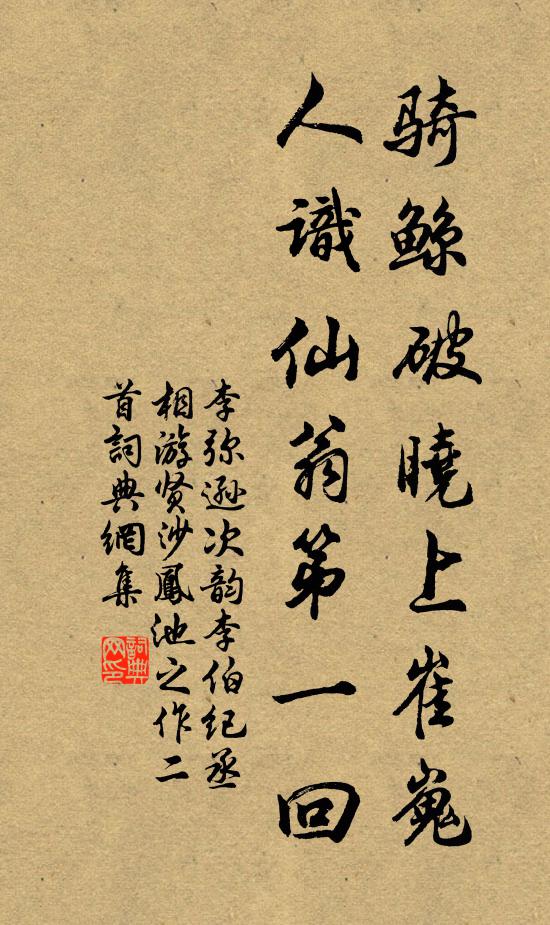 骑鲸破曉上崔嵬
人識仙翁第一回
李弥遜次韵李伯纪丞
相游贤沙鳳池之作二
首詞典網集
詞典网印